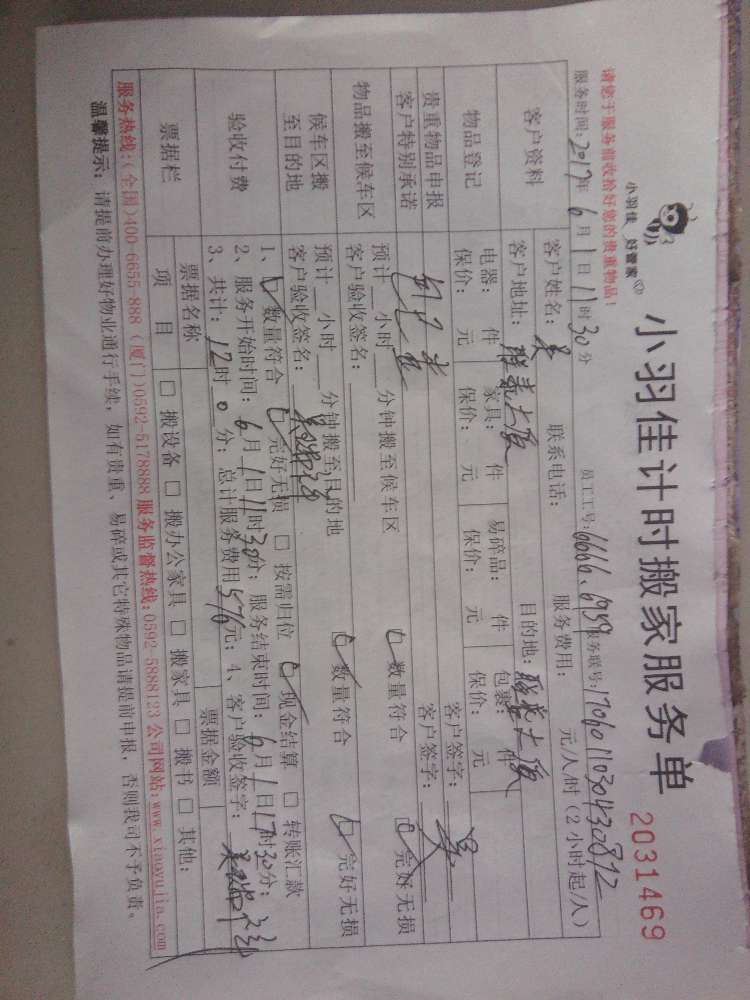 小羽佳 好管家
小羽佳计时搬家服务单
2031469
请您于服务前收拾好您的贵重物品！
服务时间：2017年 6月1日11时30分 员工工号：6666.6959 服务联号：1706011030430812
客户资料
客户姓名：吴 联系电话： 服务费用： 元/人/时（2小时起/人）
客户地址：联泰大厦 目的地：联泰大厦
物品登记
电器： 件 家具： 件 易碎品： 件 包裹： 件
保价： 元 保价： 元 保价： 元 保价： 元
贵重物品申报 客户签字：吴
客户特别承诺 客户签字：
物品搬至候车区
预计 小时 分钟搬至候车区 数量符合 完好无损
客户验收签名：
候车区搬至目的地
预计 小时 分钟搬至目的地 数量符合 完好无损
客户验收签名：
验收付费
1、 数量符合 完好无损 □ 按需归位 现金结算 □ 转账汇款
2、服务开始时间：6月1日11时30分；服务结束时间：6月1日17时30分；
3、共计：12时0分；总计服务费用576元；4、客户验收签字：
票据栏
票据名称 票据金额
项 目 □ 搬设备 □ 搬办公家具 □ 搬家具 □ 搬书 □ 其他：
服务热线：(全国)400-6655-888 (厦门)0592-5178888 服务监督热线：0592-5888123 公司网站：www.xiaoyujia.com
温馨提示：请提前办理好物业通行手续，如有贵重、易碎或其它特殊物品请提前申报，否则我司不予负责。